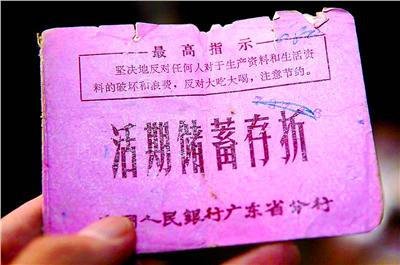 最高指示
坚决地反对任何人对于生产资料和生活资
料的破坏和浪费，反对大吃大喝，注意节约。
活期储蓄存折
国人民银行广东省分行